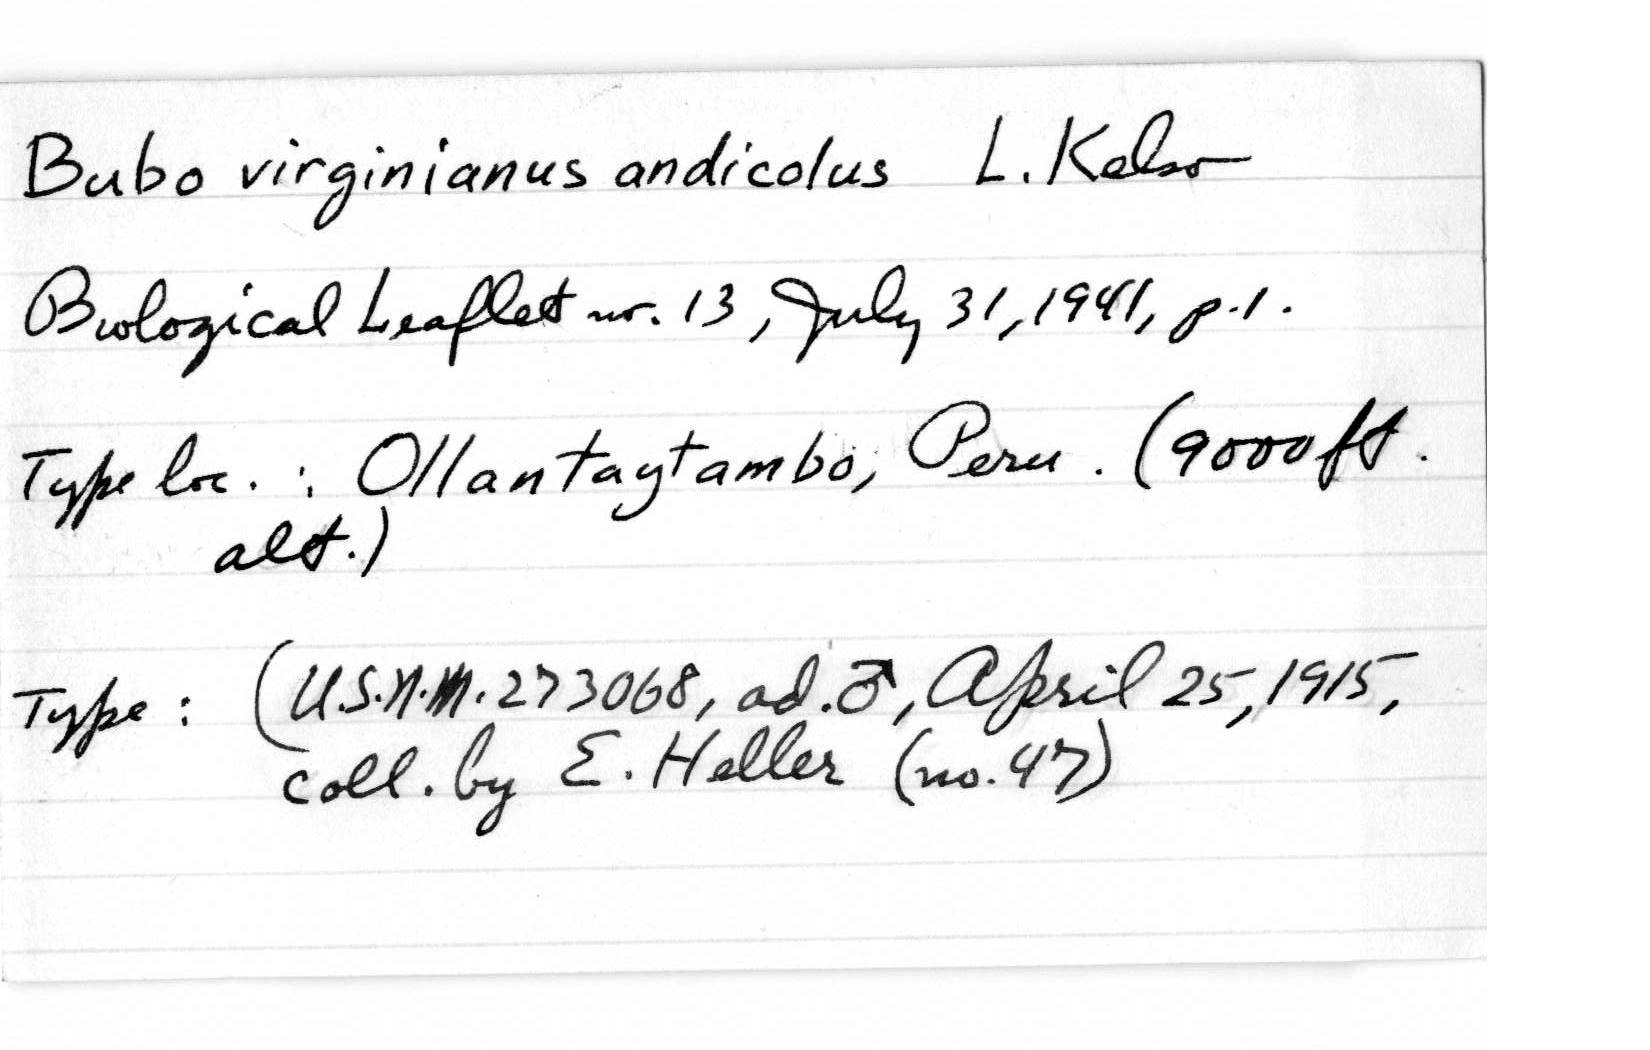 Bubo virginianus andicolus L. Kelso
Biological Leaflet no. 13, July 31, 1941, p. 1.
Type loc. : Ollantaytambo, Peru. (9000 ft.
alt.)
Type : (U.S.N.M. 273068, ad. ♂, April 25, 1915,
coll. by E. Heller (no. 47)